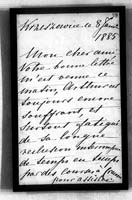 le 8 Juin
1885
Mon cher ami
Votre bonne lettre
m'est venue ce
matin,
toujours encore
souffrant, et
surtout fatigué
de sa longue
réclusion interrompue
de temps en temps
par des courses
pour assister